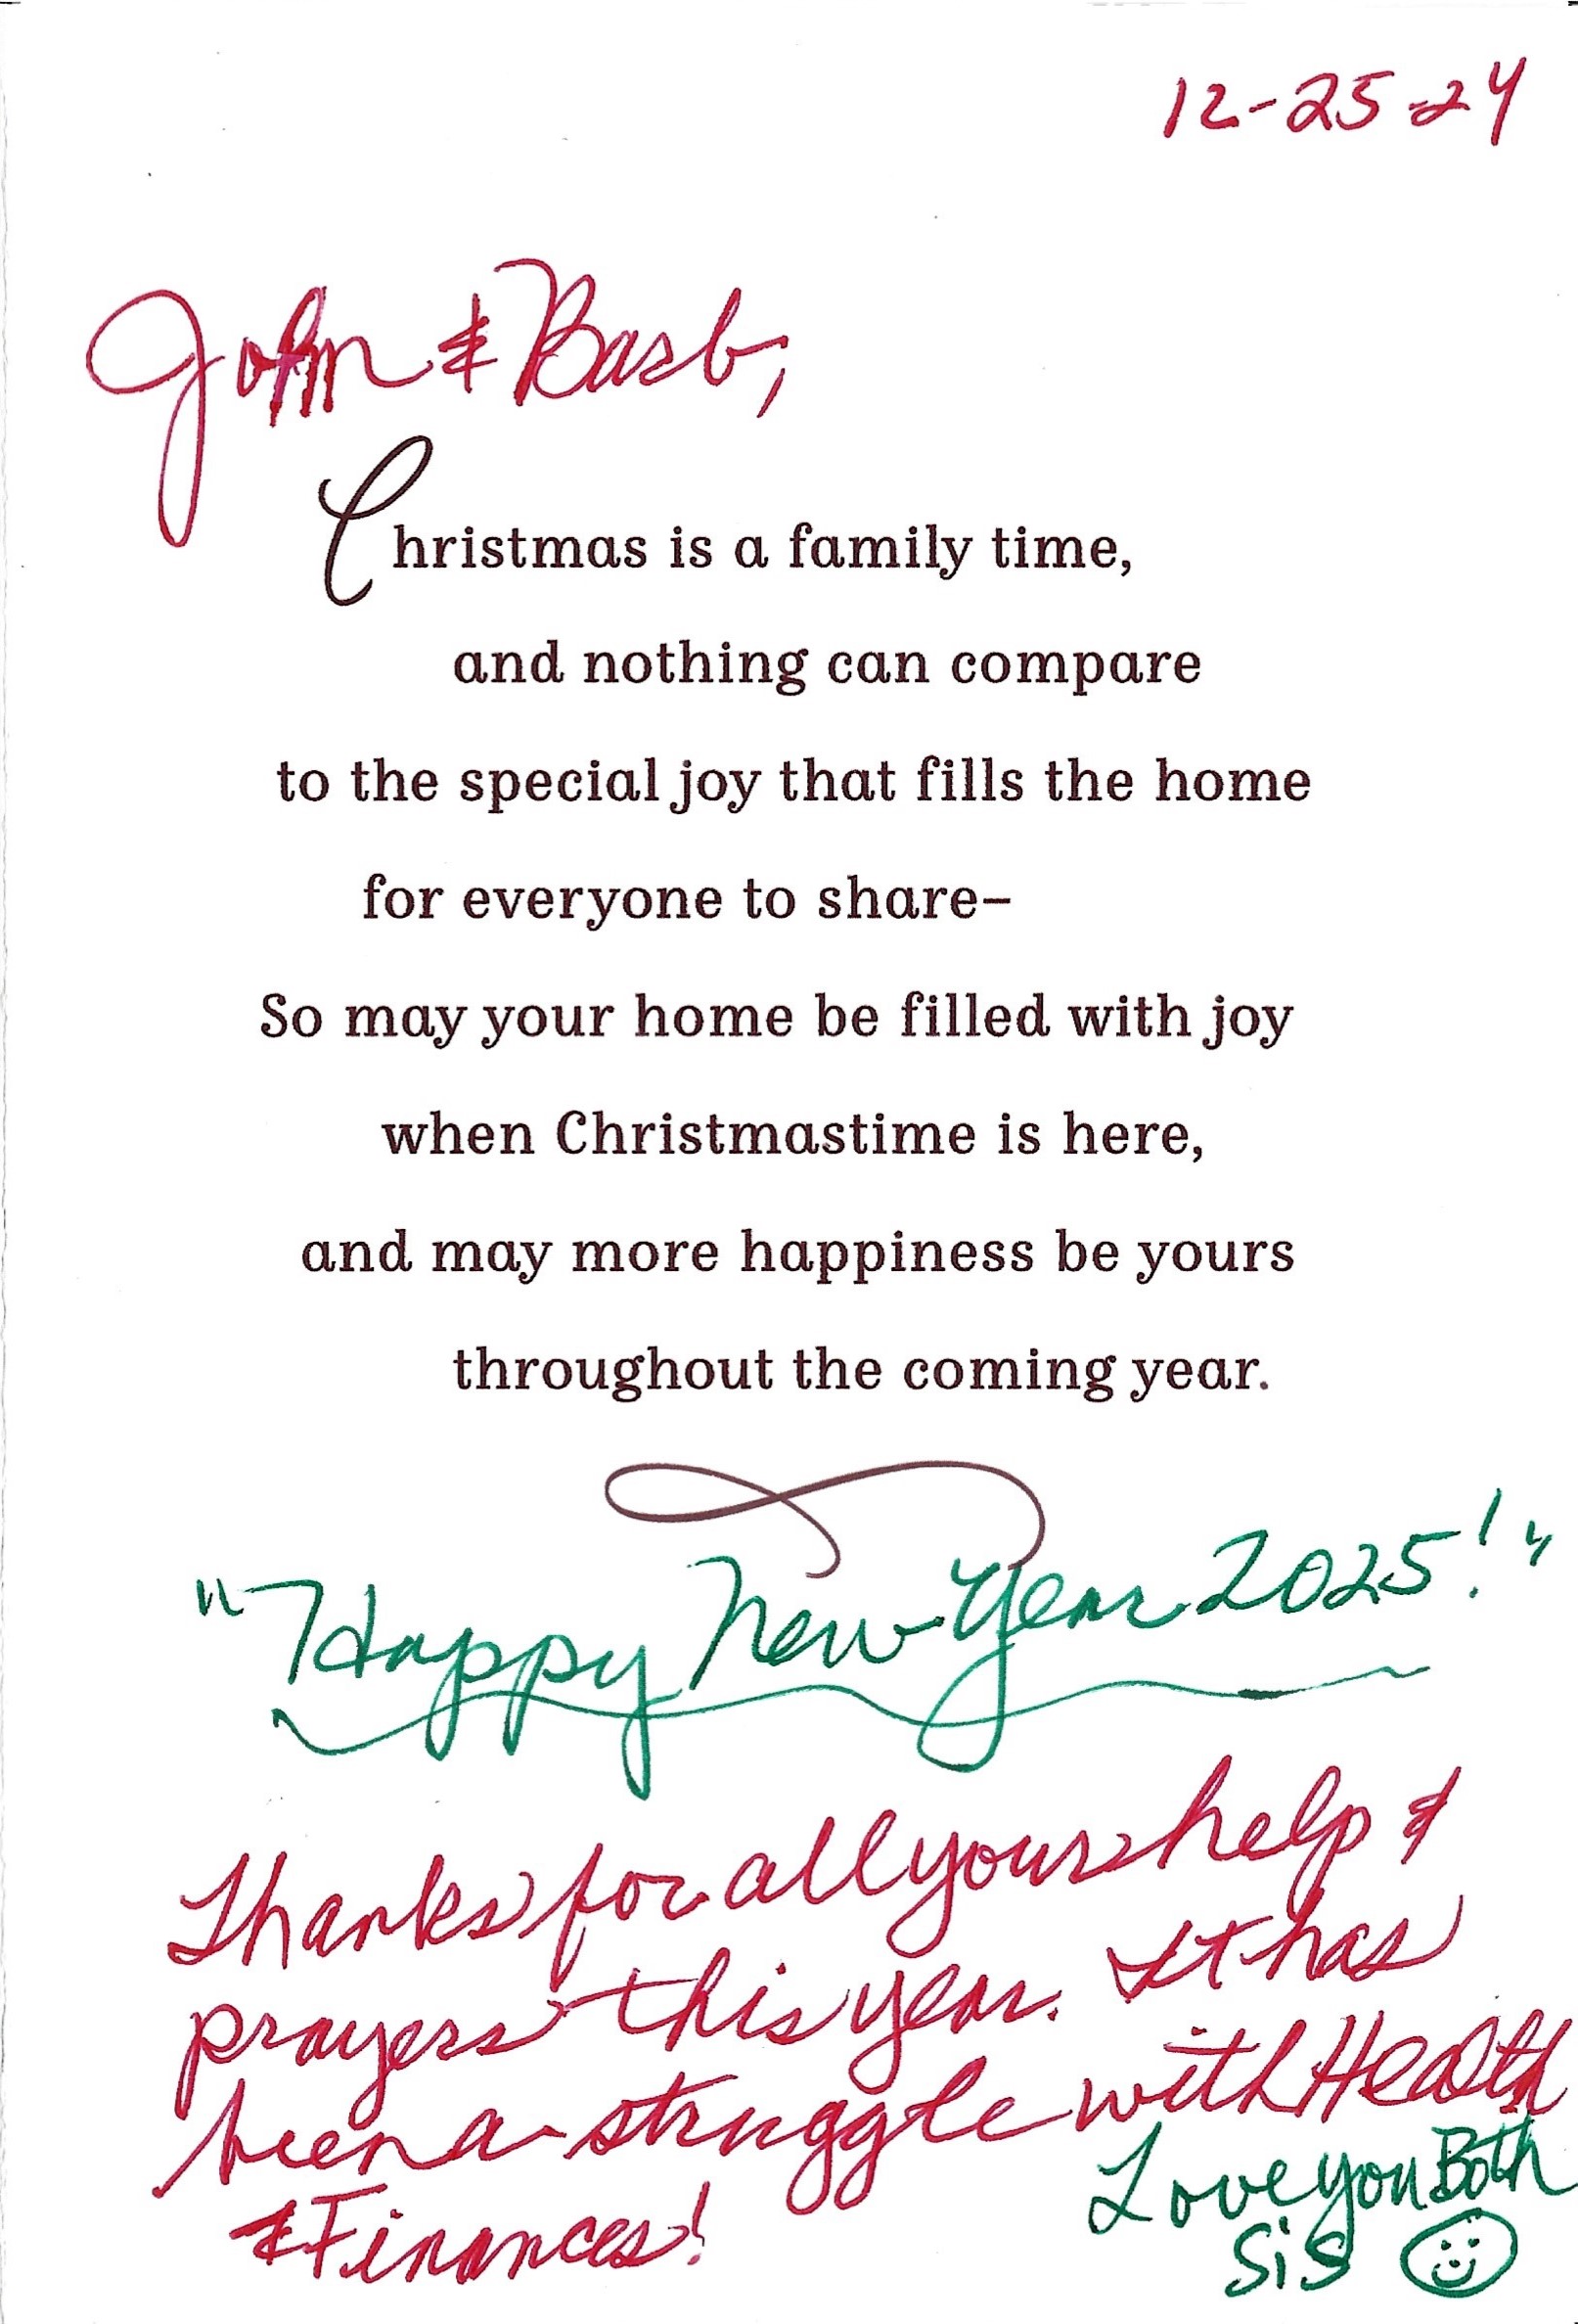 12-25-24
John & Barb,
Christmas is a family time,
and nothing can compare
to the special joy that fills the home
for everyone to share–
So may your home be filled with joy
when Christmastime is here,
and may more happiness be yours
throughout the coming year.
"Happy New Year 2025!"
Thanks for all your help &
prayers this year. It has
been a struggle with Health
& Finances!
Love you Both
Sis